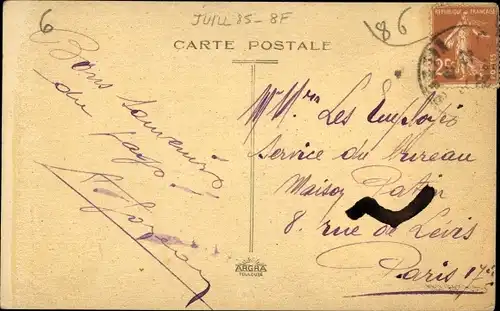 6
JUILL 85 - 8F
86
CARTE POSTALE
REPUBLIQUE FRANÇAISE
25c
Bons souvenirs
du pays !
Mrs Les Employés
Service du Bureau
Maison Patin
8. rue de Lévis
Paris 17e
ARGRA
TOULOUSE